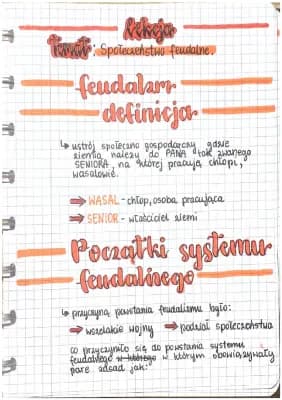 Lekcja
Temat: Społeczeństwo feudalne.
feudalizm
definicja
↳ ustrój społeczno gospodarczy gdzie
ziemia należy do PANA tak zwanego
SENIORA, na której pracują chłopi,
wasalowie.
⇒ WASAL - chłop, osoba pracująca
⇒ SENIOR - właściciel ziemi
Początki systemu
feudalnego
↳ przyczyną powstania feudalizmu było:
⇒ wszelakie wojny ⇒ podział społeczeństwa
co przyczyniło się do powstania systemu
feudalnego w którego w którym obowiązywały
pare zasad jak: